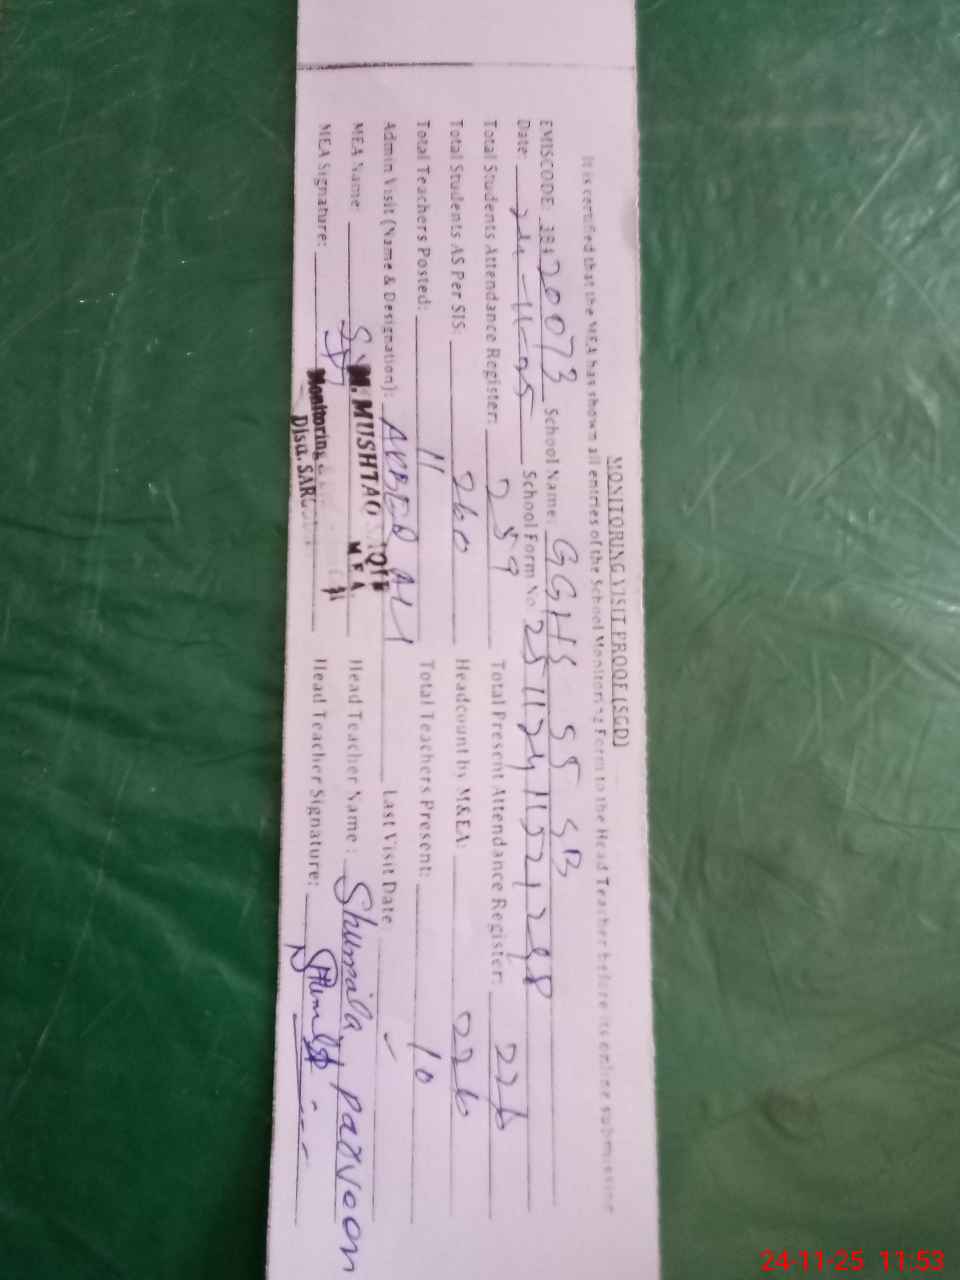 MONITORING VISIT PROOF (SGD)
It is certified that the MEA has shown all entries of the School Monitoring Form to the Head Teacher before its online submission
EMISCODE: 38420073 School Name: GGHS 55 SB
Date: 24-11-25 School Form No 251124115212
Total Students Attendance Register: 259 Total Present Attendance Register: 226
Total Students AS Per SIS: 260 Headcount by M&EA: 226
Total Teachers Posted: 11 Total Teachers Present: 10
Admin Visit (Name & Designation): AKBER ALI Last Visit Date
MEA Name: M. MUSHTAQ M.E.A. Head Teacher Name: Shumaila Parveen
MEA Signature: Monitoring Head Teacher Signature:
24-11-25 11:53